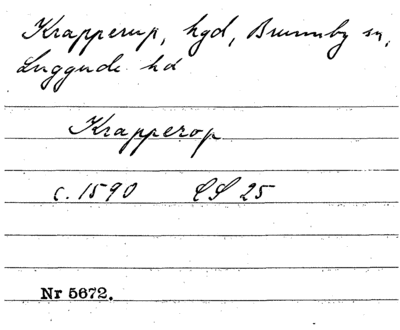 Krapperup, hgd, Brunnby sn,
Luggude hd
Krapperop
c. 1590 CS 25
Nr 5672.